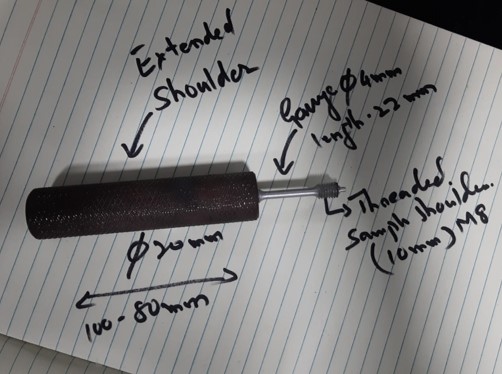 Extended
Shoulder
Gauge ϕ 4mm
length. 22 mm
Threaded.
Sample shoulder.
(10mm) M8
ϕ 20mm
100-80mm